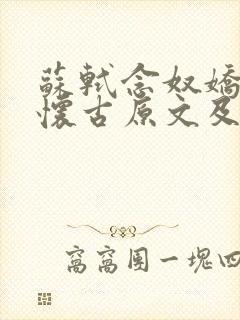 蘇軾念奴嬌
懷古原文及
窩窩團一塊四